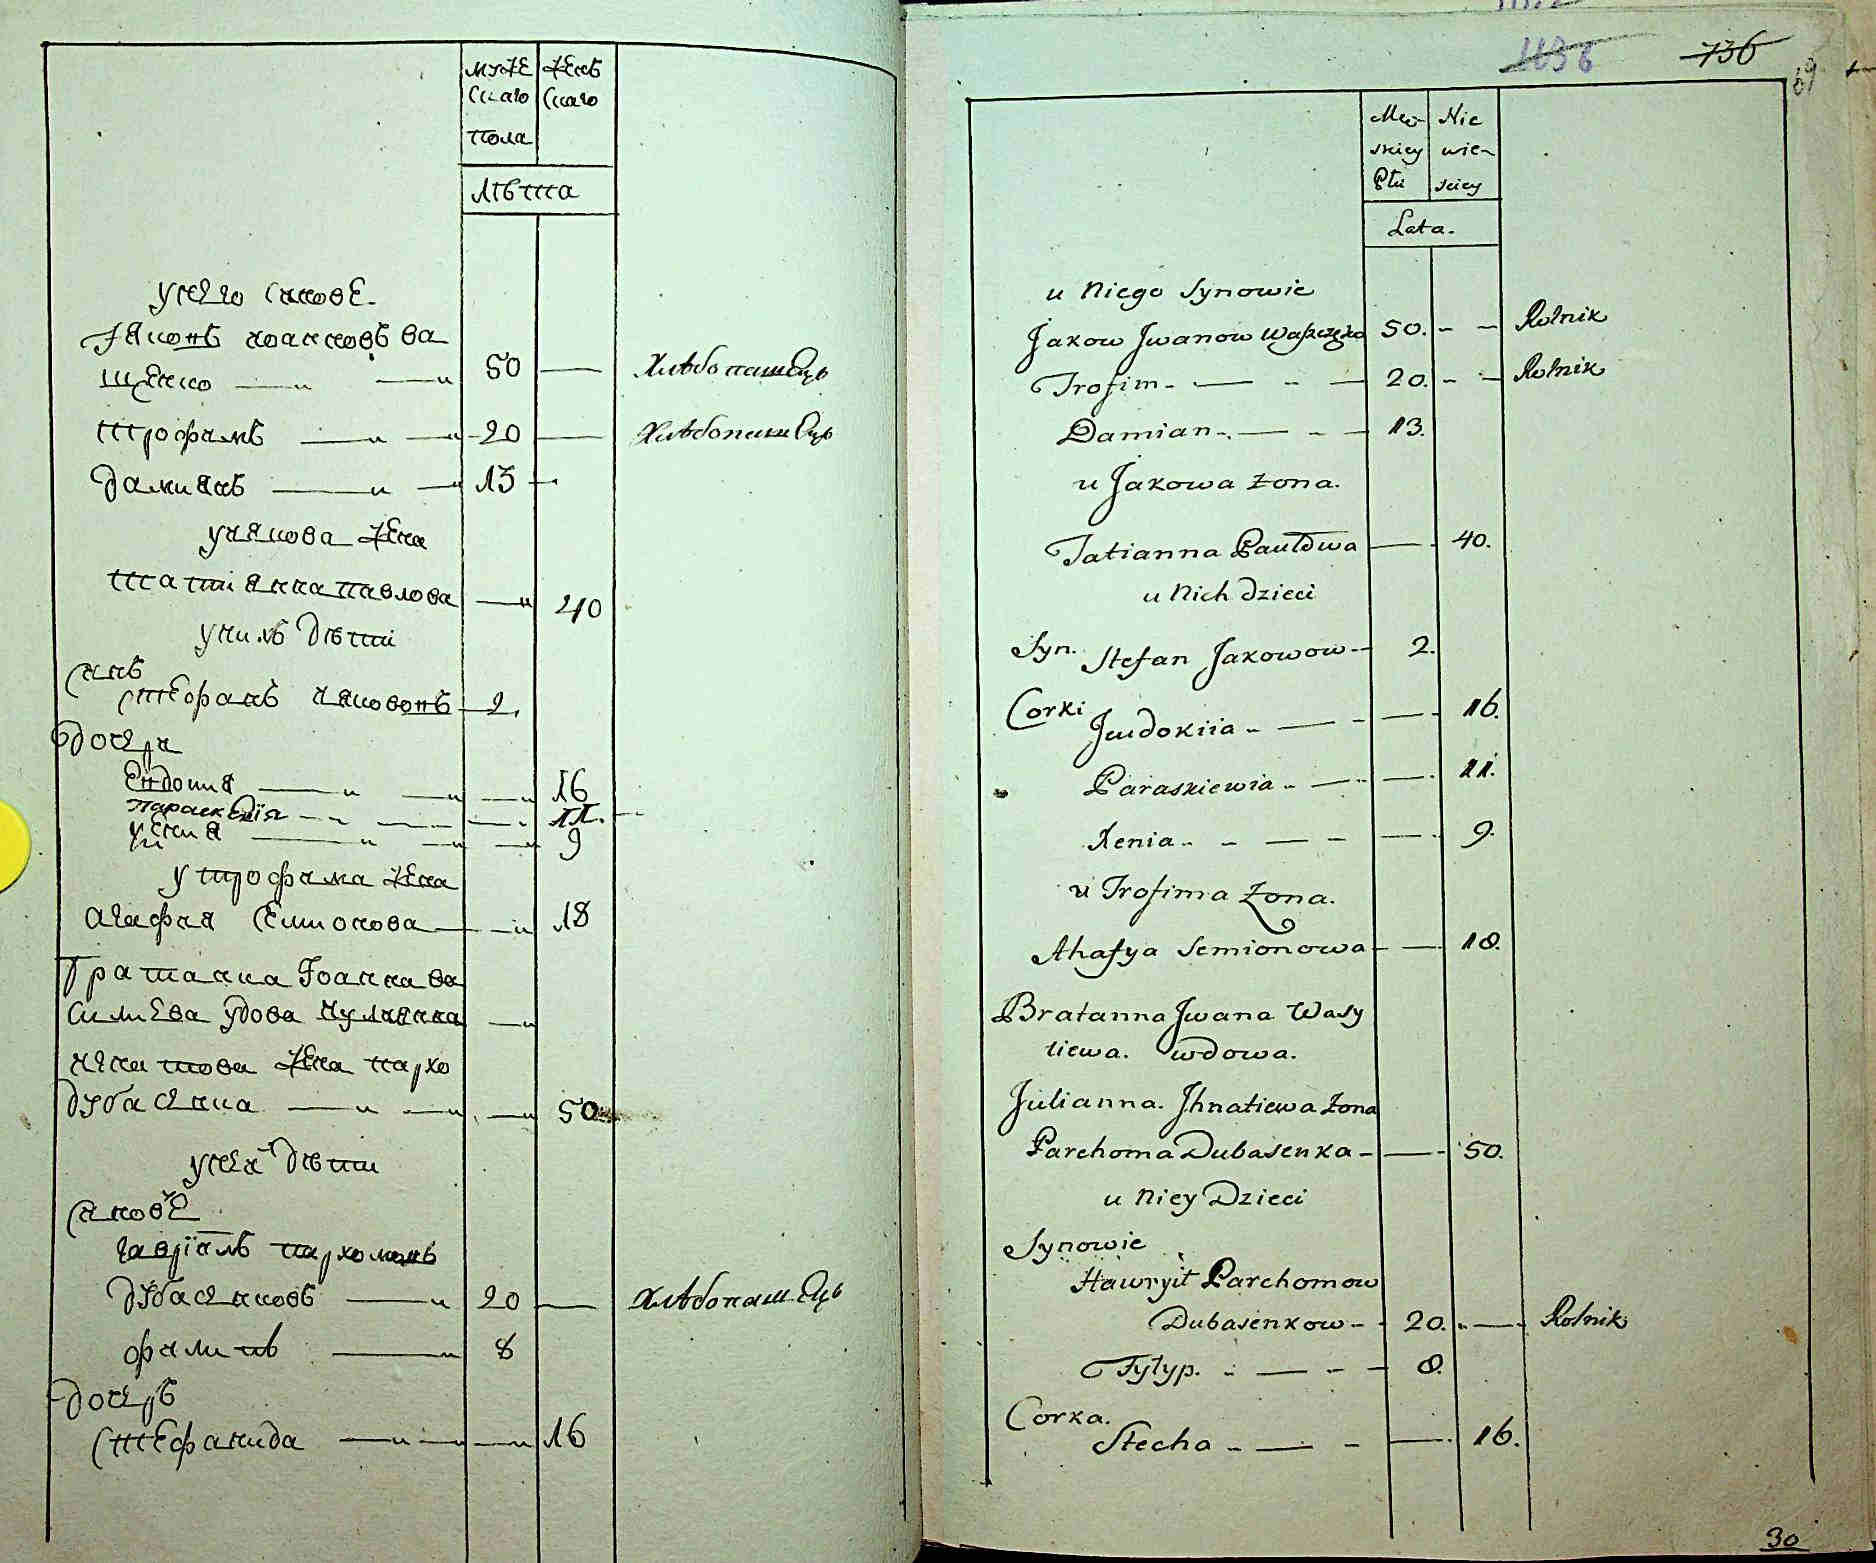 муже
скаго
пола
женс
скаго
лѣта
у него синове
Яковъ иоанновъ ва
щенко
50
хлѣбопашецъ
трофимъ
20
хлѣбопашецъ
дамиянъ
13
у якова жена
татияна павлова
40
у нихъ дѣти
синъ
стефанъ яковов
2
дочери
Евдокия
16
параскевїя
11.
ксения
9
у трофима жена
агафия семионова
18
братанка Иоанна ва
силиева удова иулияна
игнатова жена пархо
дубасенка
50
у нея дѣти
синовѣ
гаврїилъ пархомовъ
дубасенковъ
20
хлѣбопашецъ
филипъ
8
дочерь
стефанида
16
736
69
Męz-
skiey
Płci
Nie
wie-
sciey
Lata.
u Niego Synowie
Jakow Jwanow Waszczęko 50.
Rolnik
Trofim 20.
Rolnik
Damian 13.
u Jakowa żona.
Tatianna Pawłowa 40.
u Nich dzieci
Syn. Stefan Jakowow 2.
Corki
Jewdokiia 16.
Paraskiewia 11.
Xenia 9.
u Trofima żona.
Ahafya Semionowa 18.
Bratanna Jwana Wasy
liewa. wdowa.
Julianna. Jhnatiewa żona
Parchoma Dubasenka 50.
u Niey Dzieci
Synowie
Hawryił Parchomow
Dubasenkow 20.
Rolnik
Fyłyp. 8.
Corka.
Stecha 16.
30